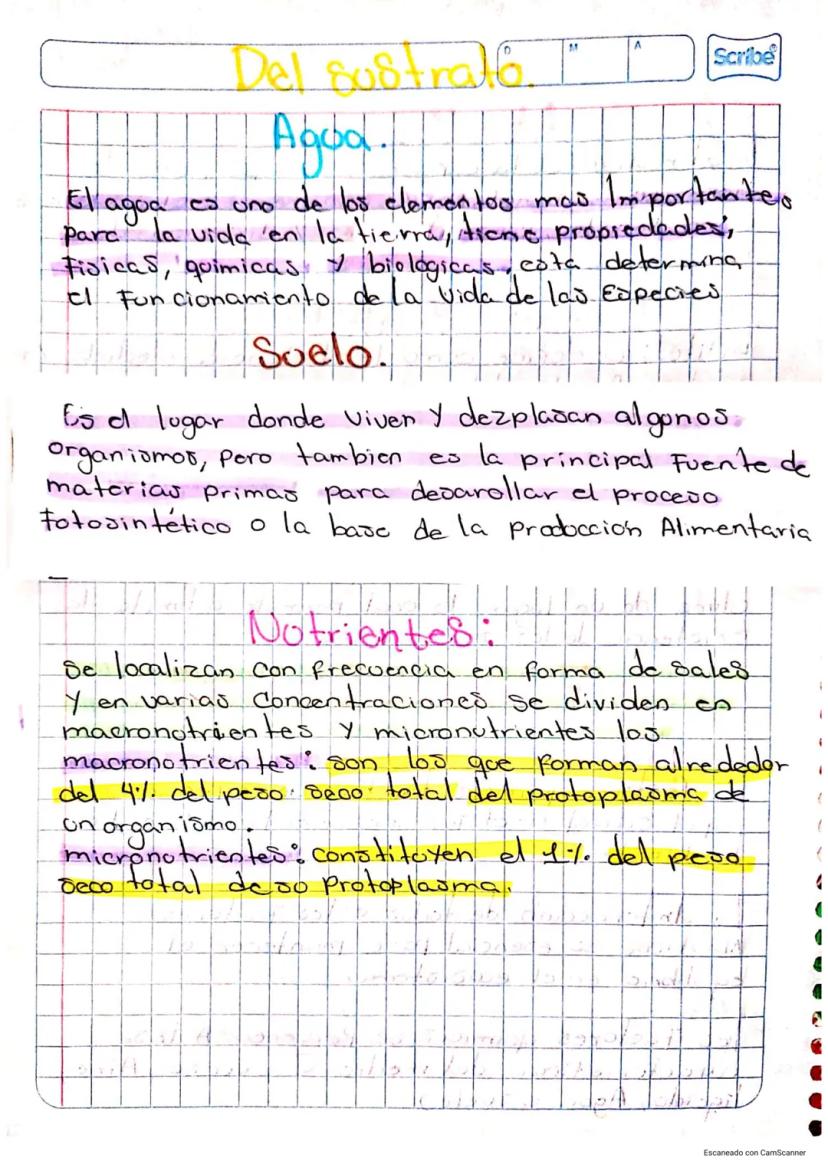 Del sustrato.
D M A
Scribe®
Agua.
El agua es uno de los elementos mas Importantes
para la vida en la tierra, tiene propiedades,
Fisicas, quimicas y biológicas, esta determina
el Funcionamiento de la vida de las Especies
Suelo.
Es el lugar donde viven y dezplasan algunos
organismos, pero tambien es la principal Fuente de
materias primas para desarollar el proceso
fotosintético o la base de la Producción Alimentaria
Nutrientes:
se localizan con frecuencia en forma de sales
y en varias concentraciones se dividen en
macronutrientes y micronutrientes los
macronutrientes: son los que forman alrededor
del 4% del peso seco total del protoplasma de
un organismo.
micronutrientes: constituyen el 1% del peso
seco total de so Protoplasma.
Escaneado con CamScanner